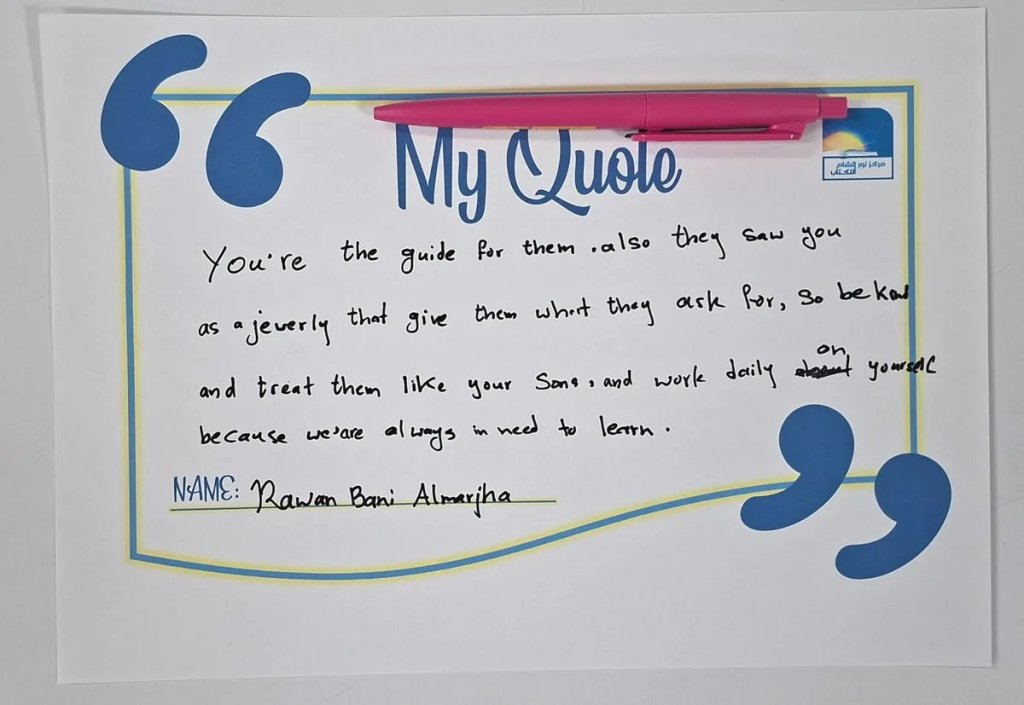 My Quote
مركز نور الشام
للكتاب
You're the guide for them . also they saw you
as a jeverly that give them what they ask for, so be kind
and treat them like your sons, and work daily on yourself
because we'are always in need to learn .
NAME: Rawan Bani Almarjha